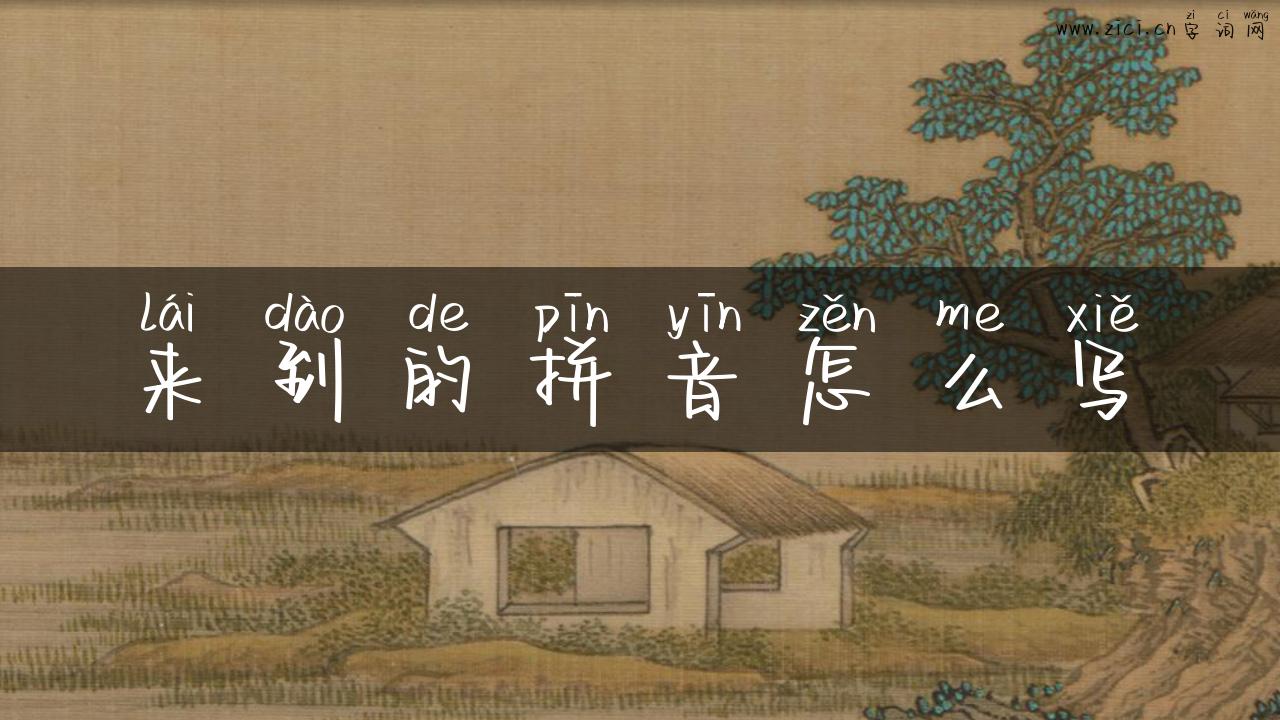 zì cí wǎng
www.zici.cn 字词网
lái dào de pīn yīn zěn me xiě
来到的拼音怎么写